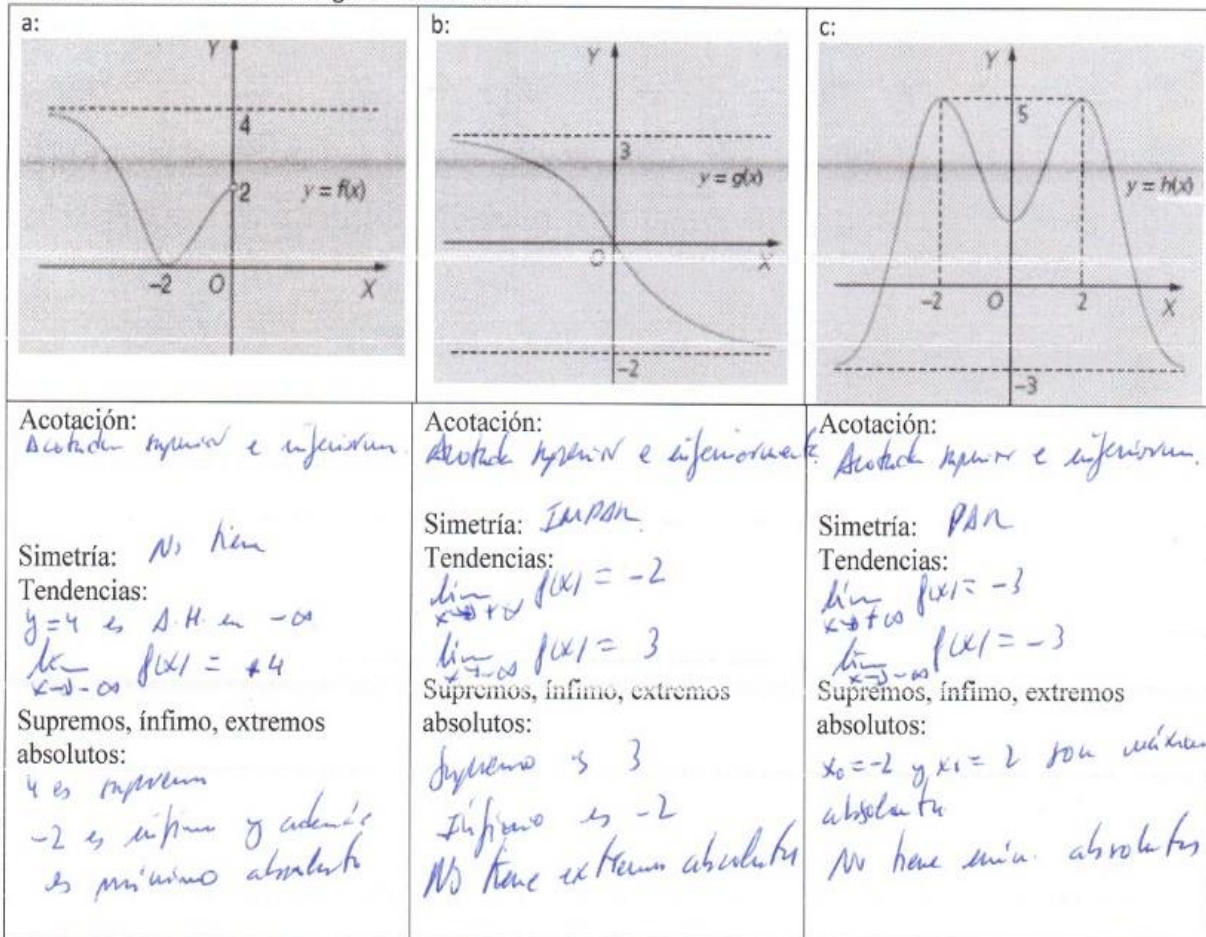 a:
Y
4
2
y = f(x)
-2
O
X
b:
Y
3
y = g(x)
O
X
-2
c:
Y
5
y = h(x)
-2
O
2
X
-3
Acotación:
Acotada superior e inferiorm.
Simetría: No tiene
Tendencias:
y=4 es A.H. en -∞
lim x→-∞ f(x) = +4
Supremos, ínfimo, extremos
absolutos:
4 es supremo
-2 es ínfimo y además
es mínimo absoluto
Acotación:
Acotada superior e inferiormente.
Simetría: IMPAR
Tendencias:
lim x→+∞ f(x) = -2
lim x→-∞ f(x) = 3
Supremos, ínfimo, extremos
absolutos:
Supremo es 3
Ínfimo es -2
No tiene extremos absolutos
Acotación:
Acotada superior e inferiorm.
Simetría: PAR
Tendencias:
lim x→+∞ f(x) = -3
lim x→-∞ f(x) = -3
Supremos, ínfimo, extremos
absolutos:
x₀=-2 y x₁=2 son máximos
absolutos
No tiene mín. absolutos